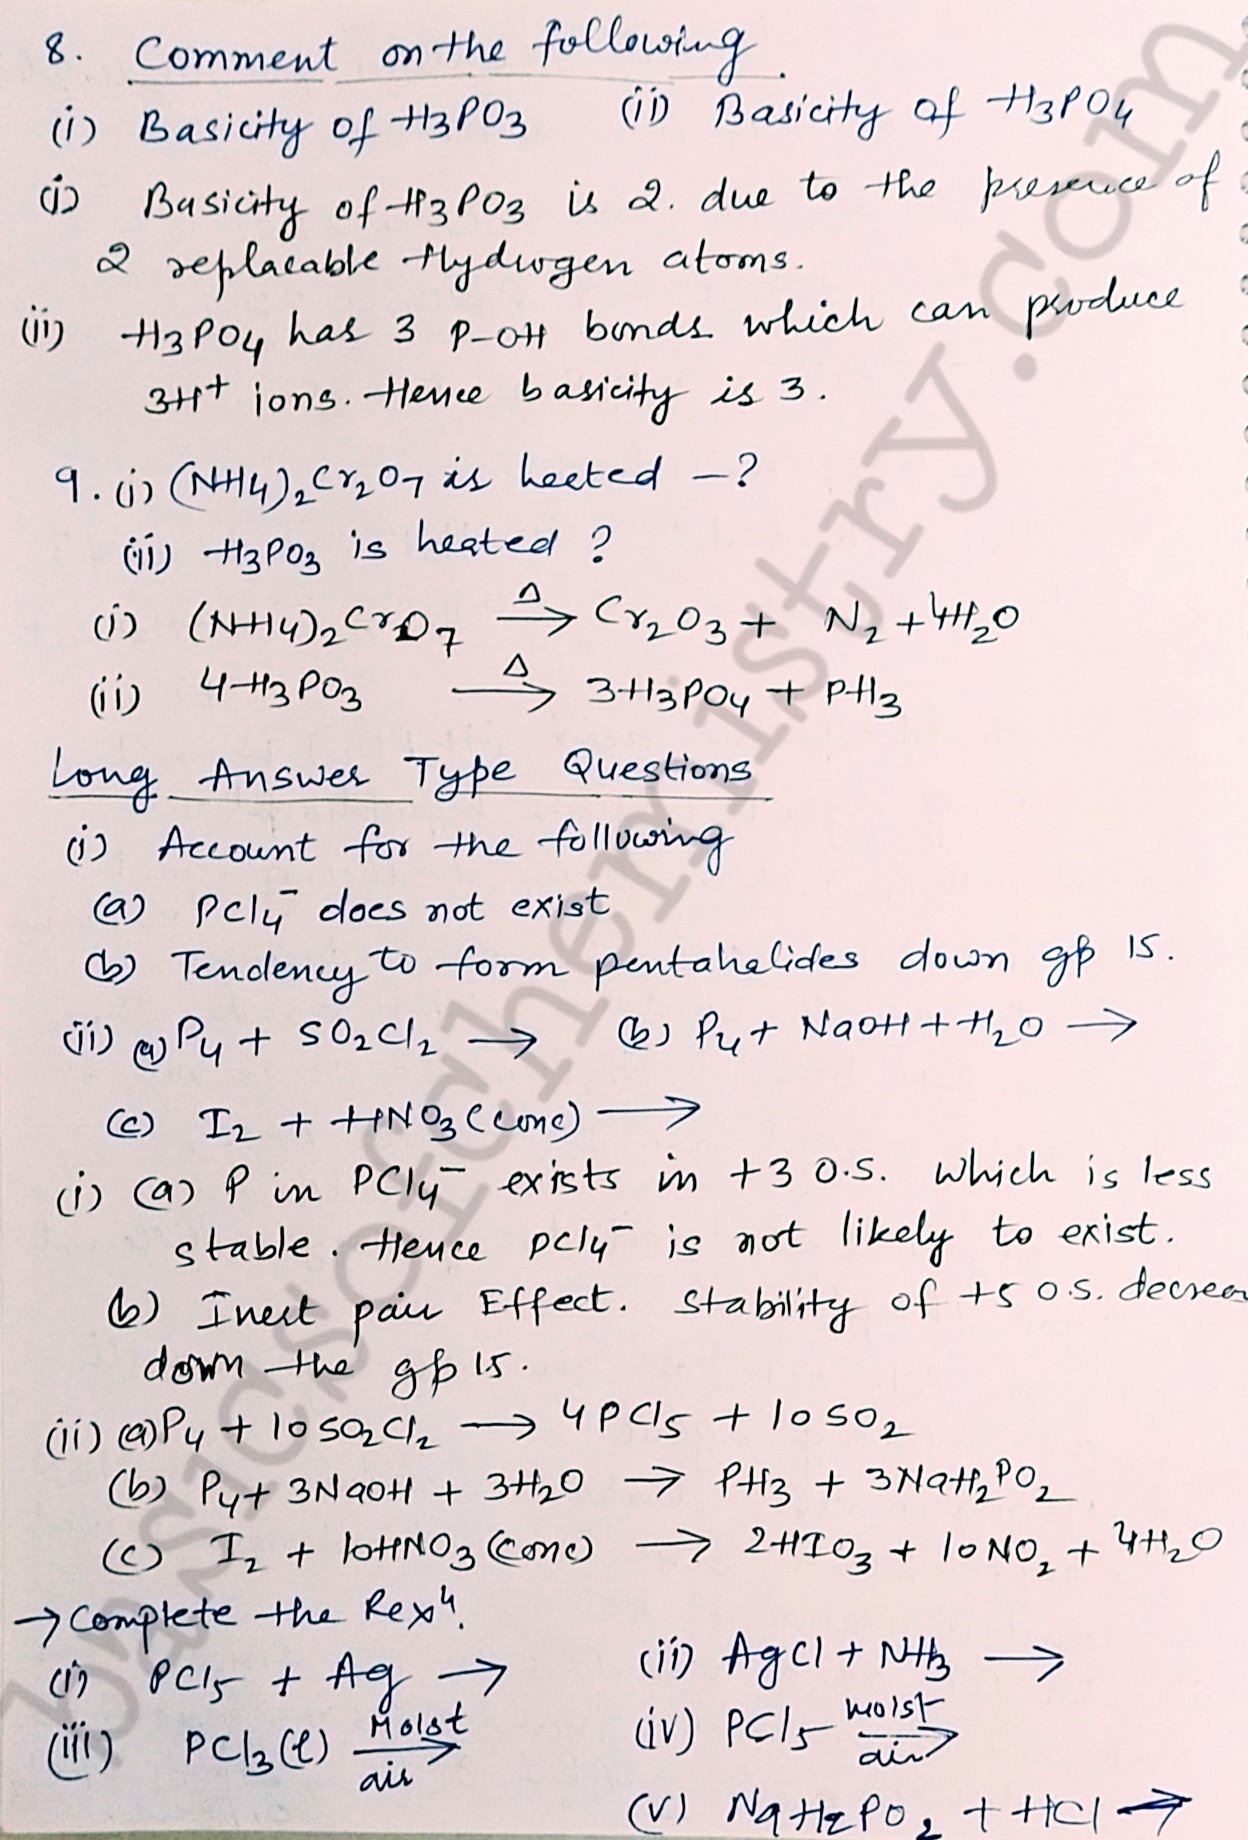 8. Comment on the following.
(i) Basicity of H3PO3 (ii) Basicity of H3PO4
(i) Basicity of H3PO3 is 2. due to the presence of
2 replacable Hydrogen atoms.
(ii) H3PO4 has 3 P-OH bonds which can produce
3H⁺ ions. Hence basicity is 3.
9. (i) (NH4)₂Cr₂O₇ is heeted -?
(ii) H3PO3 is heated ?
(i) (NH4)₂Cr₂O₇ —Δ→ Cr₂O3 + N₂ + 4H₂O
(ii) 4H3PO3 —Δ→ 3H3PO4 + PH3
Long Answer Type Questions
(i) Account for the following
(a) PCl4⁻ does not exist
(b) Tendency to form pentahalides down gp 15.
(ii) (a) P4 + SO2Cl2 → (b) P4 + NaOH + H2O →
(c) I2 + HNO3 (conc) →
(i) (a) P in PCl4⁻ exists in +3 O.S. which is less
stable. Hence PCl4⁻ is not likely to exist.
(b) Inert pair Effect. Stability of +5 O.S. decrea
down the gp 15.
(ii) (a) P4 + 10SO2Cl2 → 4PCl5 + 10SO2
(b) P4 + 3NaOH + 3H2O → PH3 + 3NaH2PO2
(c) I2 + 10HNO3 (conc) → 2HIO3 + 10NO2 + 4H2O
→ Complete the Rexⁿ.
(i) PCl5 + Ag → (ii) AgCl + NH3 →
(iii) PCl3(l) —Moist air→ (iv) PCl5 —moist air→
(v) NaH2PO2 + HCl →
basicsofchemistry.com